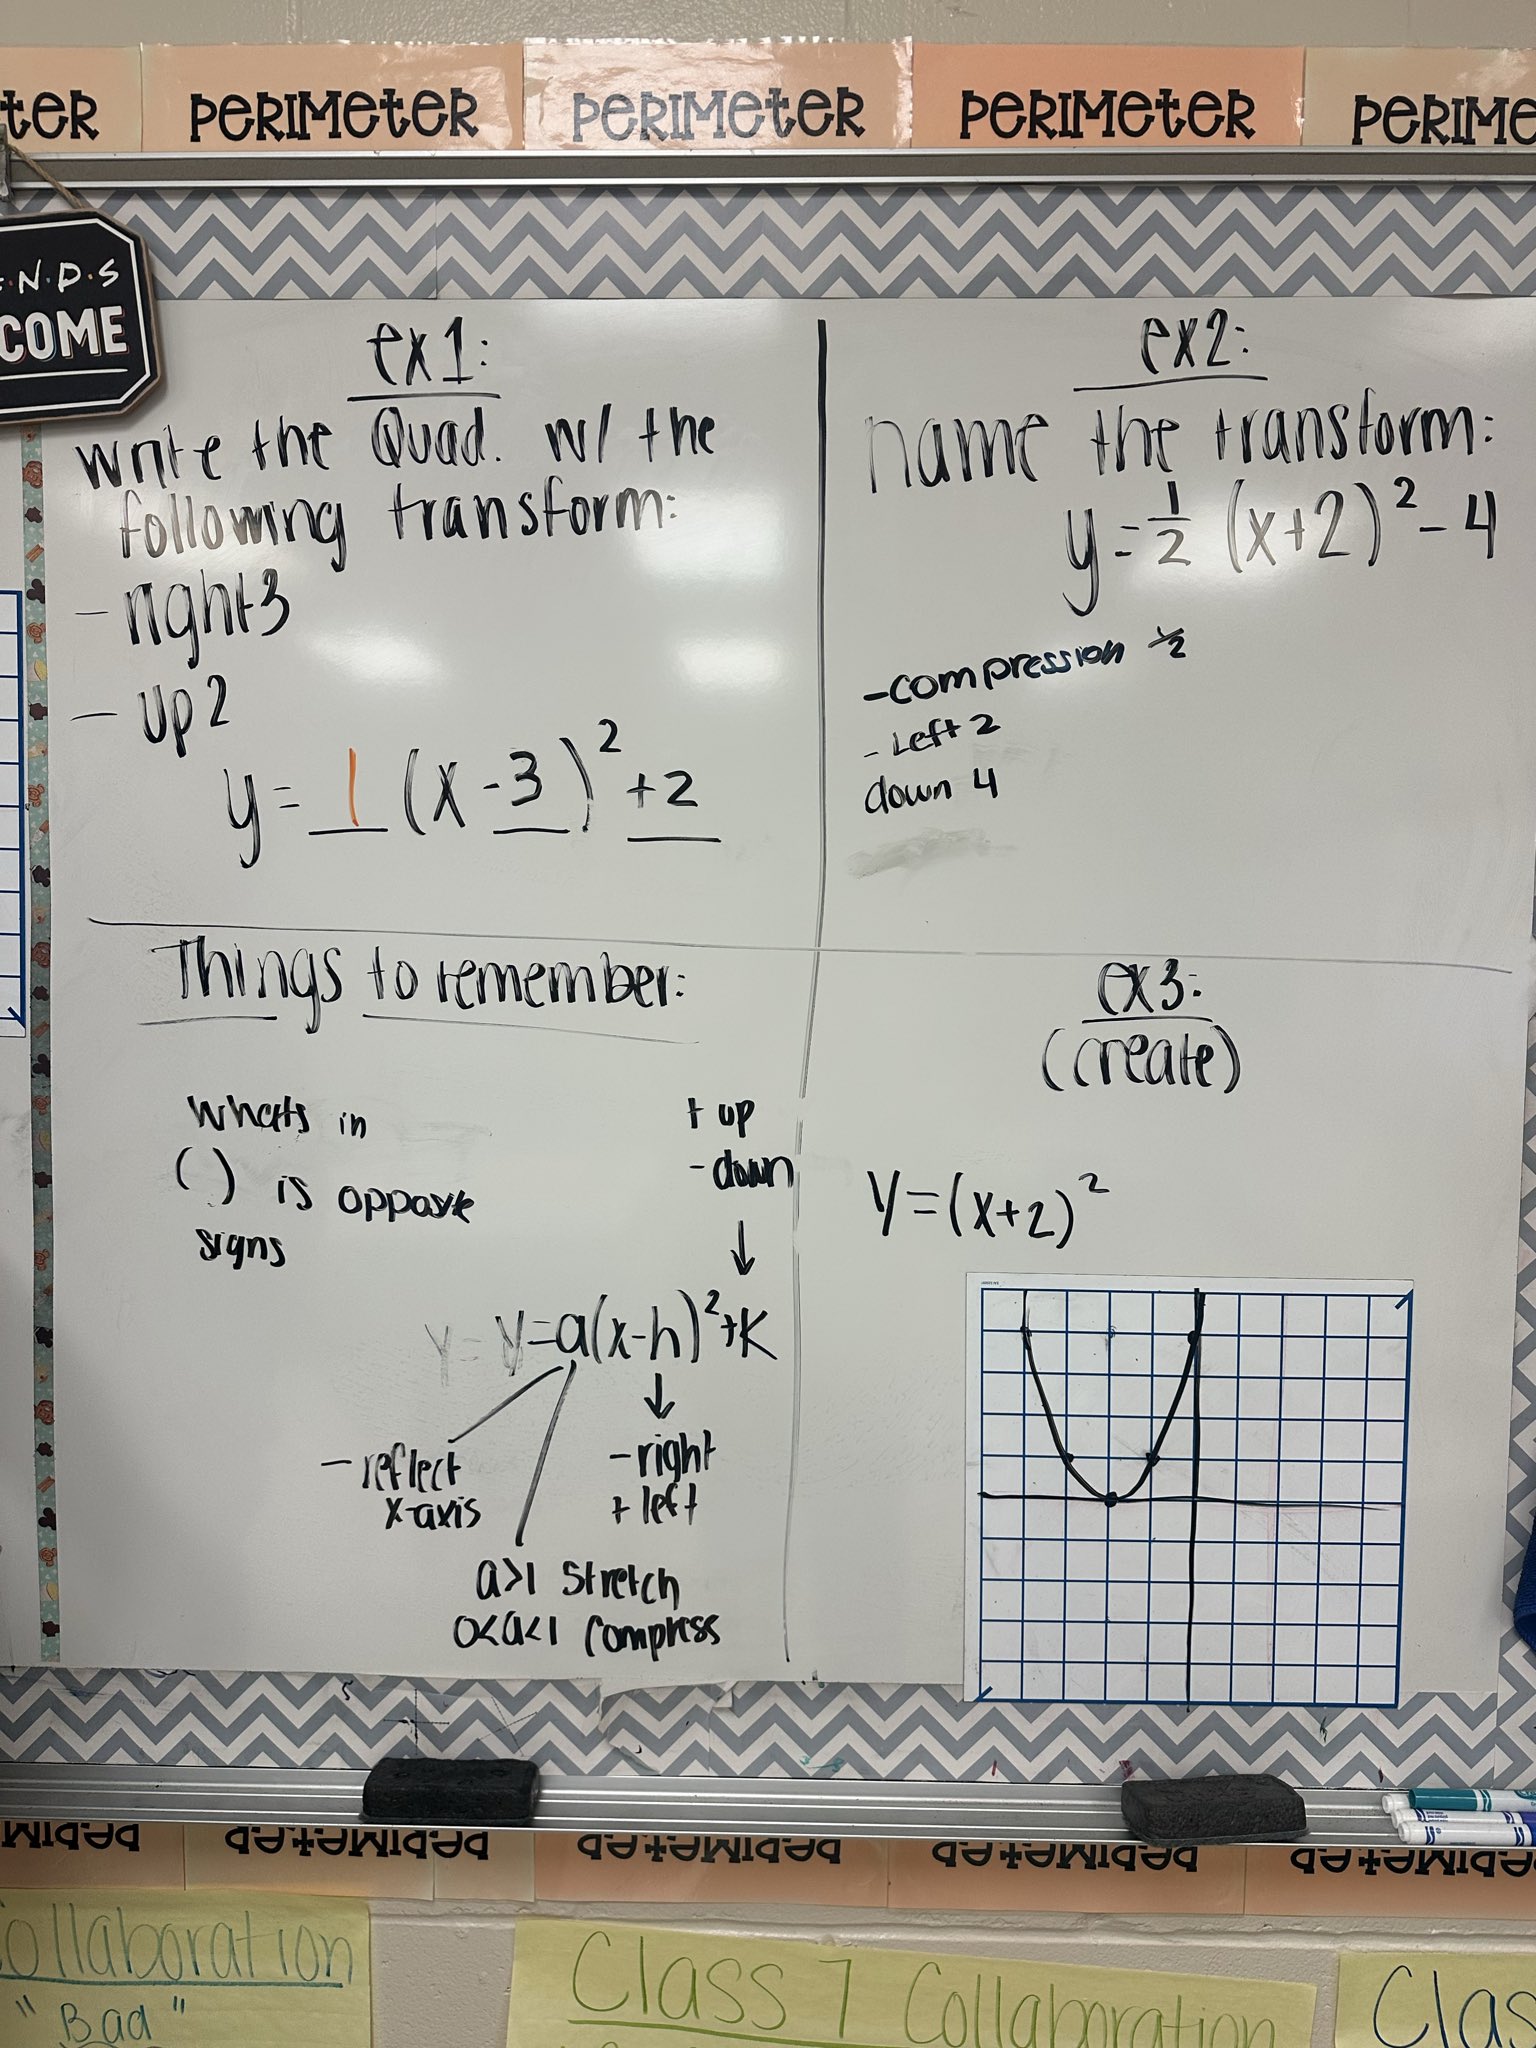 PERIMETER PERIMETER PERIMETER
N.D.S
COME
ex1:
write the Quad. w/ the
following transform:
- right 3
- up 2
y = 1 (x - 3)² + 2
ex2:
name the transform:
y = 1/2 (x+2)² - 4
- compression 1/2
- Left 2
down 4
Things to remember:
whats in
( ) is opposite
signs
+ up
- down
y = y = a(x-h)² + K
- reflect
x-axis
- right
+ left
a>1 stretch
0<a<1 compress
ex3:
(create)
y = (x+2)²
PERIMETER PERIMETER PERIMETER
Collaboration
"Bad"
Class 7 Collaboration
Clas